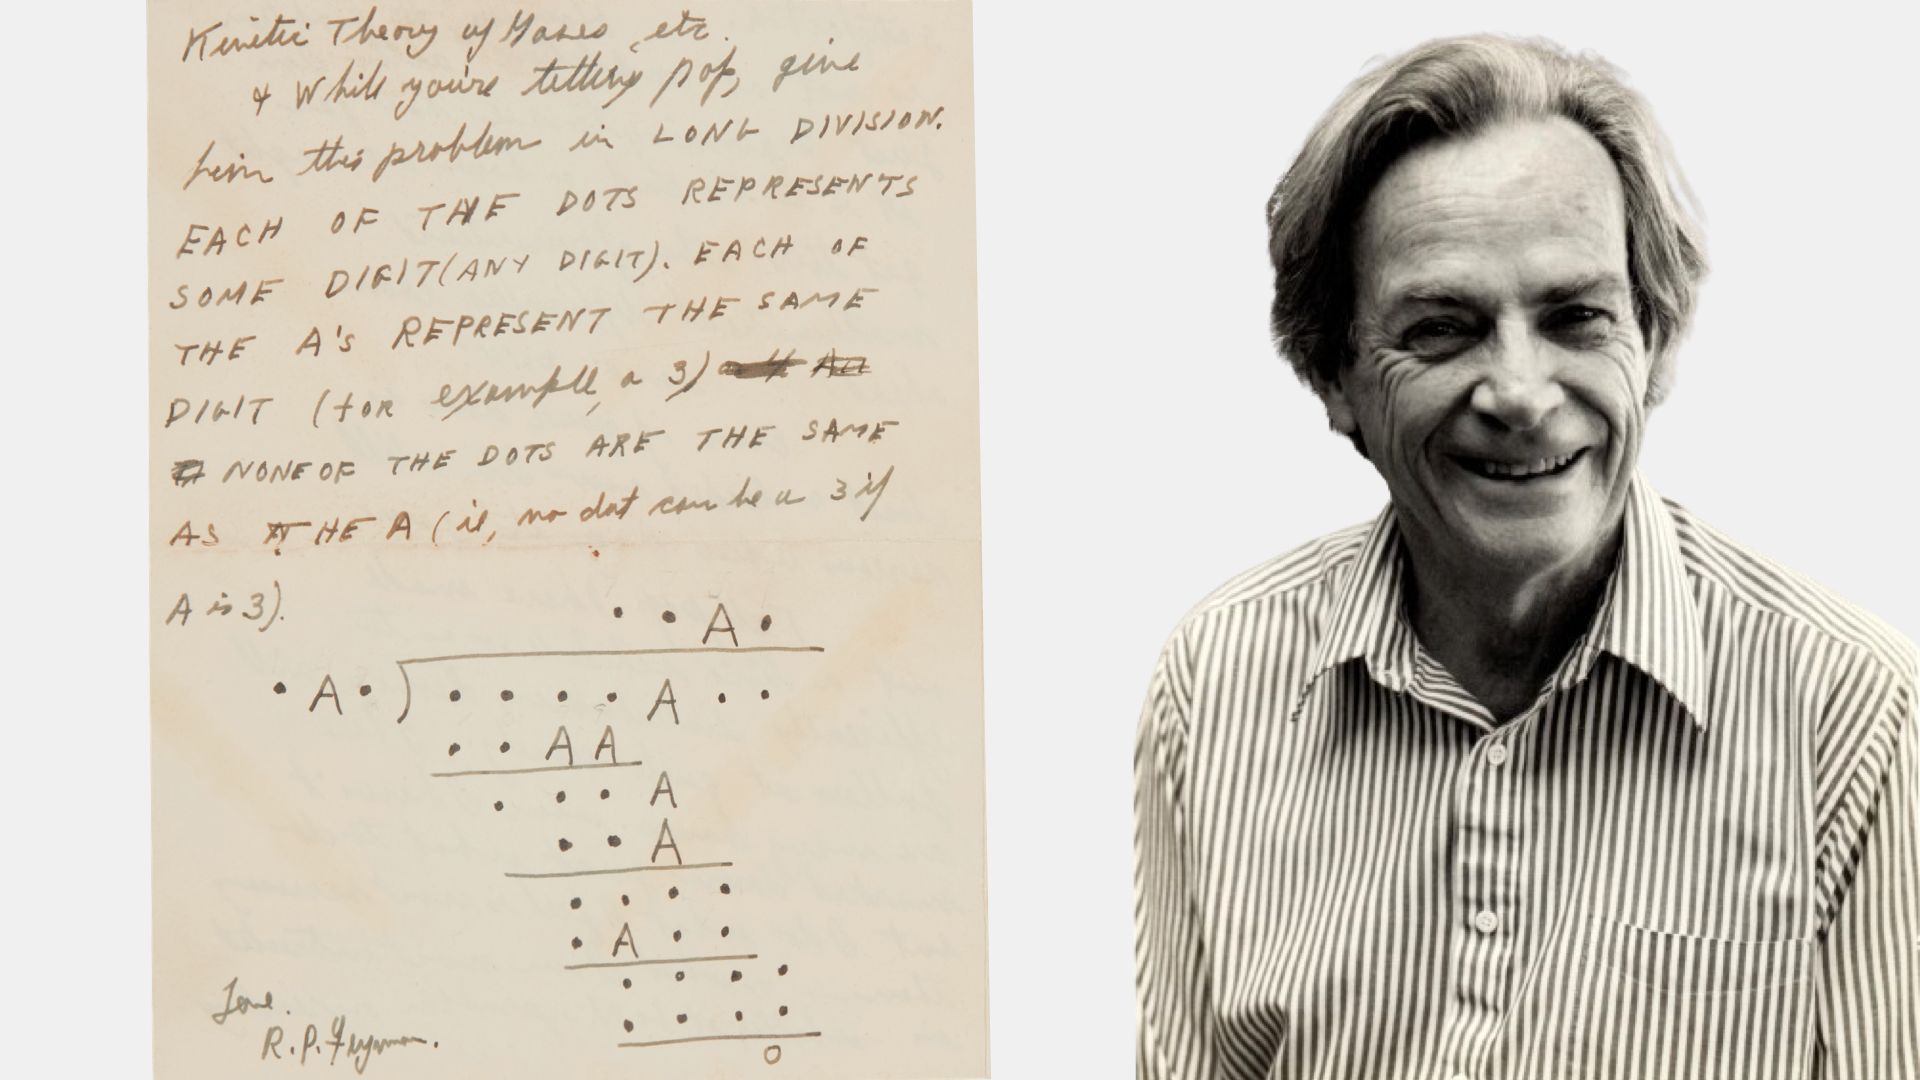 Kinetic Theory of Gases, etc.
& While you're telling pop, give
him this problem in LONG DIVISION.
EACH OF THE DOTS REPRESENTS
SOME DIGIT (ANY DIGIT). EACH OF
THE A's REPRESENT THE SAME
DIGIT (for example, a 3)
NONE OF THE DOTS ARE THE SAME
AS THE A (ie, no dot can be a 3 if
A is 3).
. . A .
. A . ) . . . . A . .
. . A A
. . . A
. . A
. . . .
. A . .
. . . .
. . . .
0
Love.
R.P. Feynman.